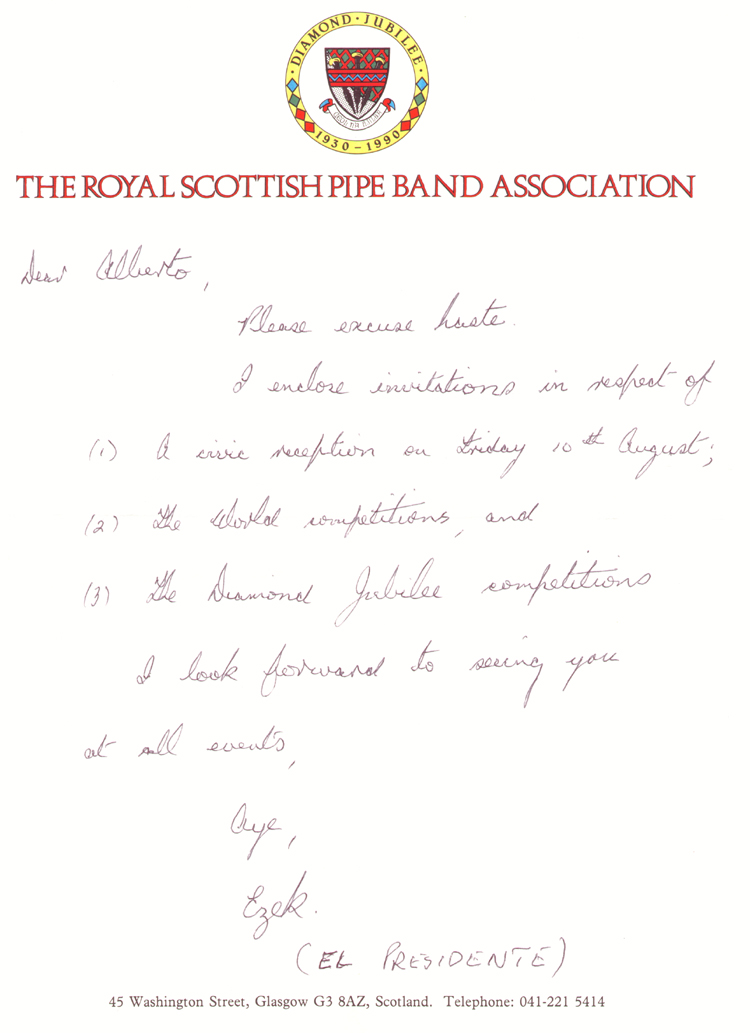 · DIAMOND · JUBILEE ·
1930 – 1990
THE ROYAL SCOTTISH PIPE BAND ASSOCIATION
Dear Alberto,
Please excuse haste.
I enclose invitations in respect of
(1) A civic reception on Friday 10th August;
(2) The World competitions, and
(3) The Diamond Jubilee competitions
I look forward to seeing you
at all events,
Aye,
Ezek.
(EL PRESIDENTE)
45 Washington Street, Glasgow G3 8AZ, Scotland. Telephone: 041-221 5414